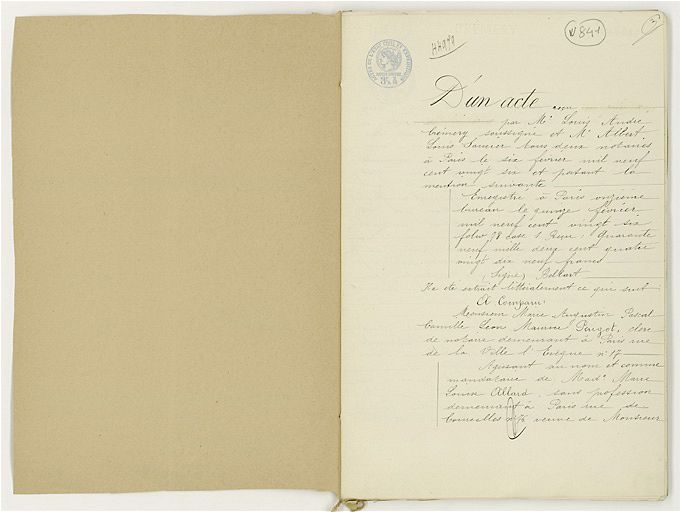 V841
D'un acte
par Me Louis André
Crémery soussigné et Me Albert
Louis tous deux notaires
à Paris le six février mil neuf
cent vingt six et portant la
mention suivante
Enregistré à Paris onzième
bureau le quinze février
mil neuf cent vingt six
folio 78 case 1 Reçu : Quarante
neuf mille deux cent quatre
vingt dix neuf francs
(Signé)
Il a été extrait littéralement ce qui suit
A Comparu :
Monsieur Marie Augustin Pascal
Camille Léon Maurice clerc
de notaire demeurant à Paris rue
de la Ville l'Evêque no
Agissant au nom et comme
mandataire de Made Marie
Louise Allard, sans profession
demeurant à Paris rue de
Courcelles no veuve de Monsieur